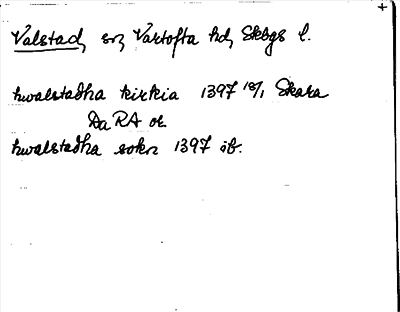 Valstad, sn, Vartofta hd, Skbgs l.
hwalstadha kirkia 1397 18/1 Skara
DaRA or.
hwalstadha sokn 1397 ib.